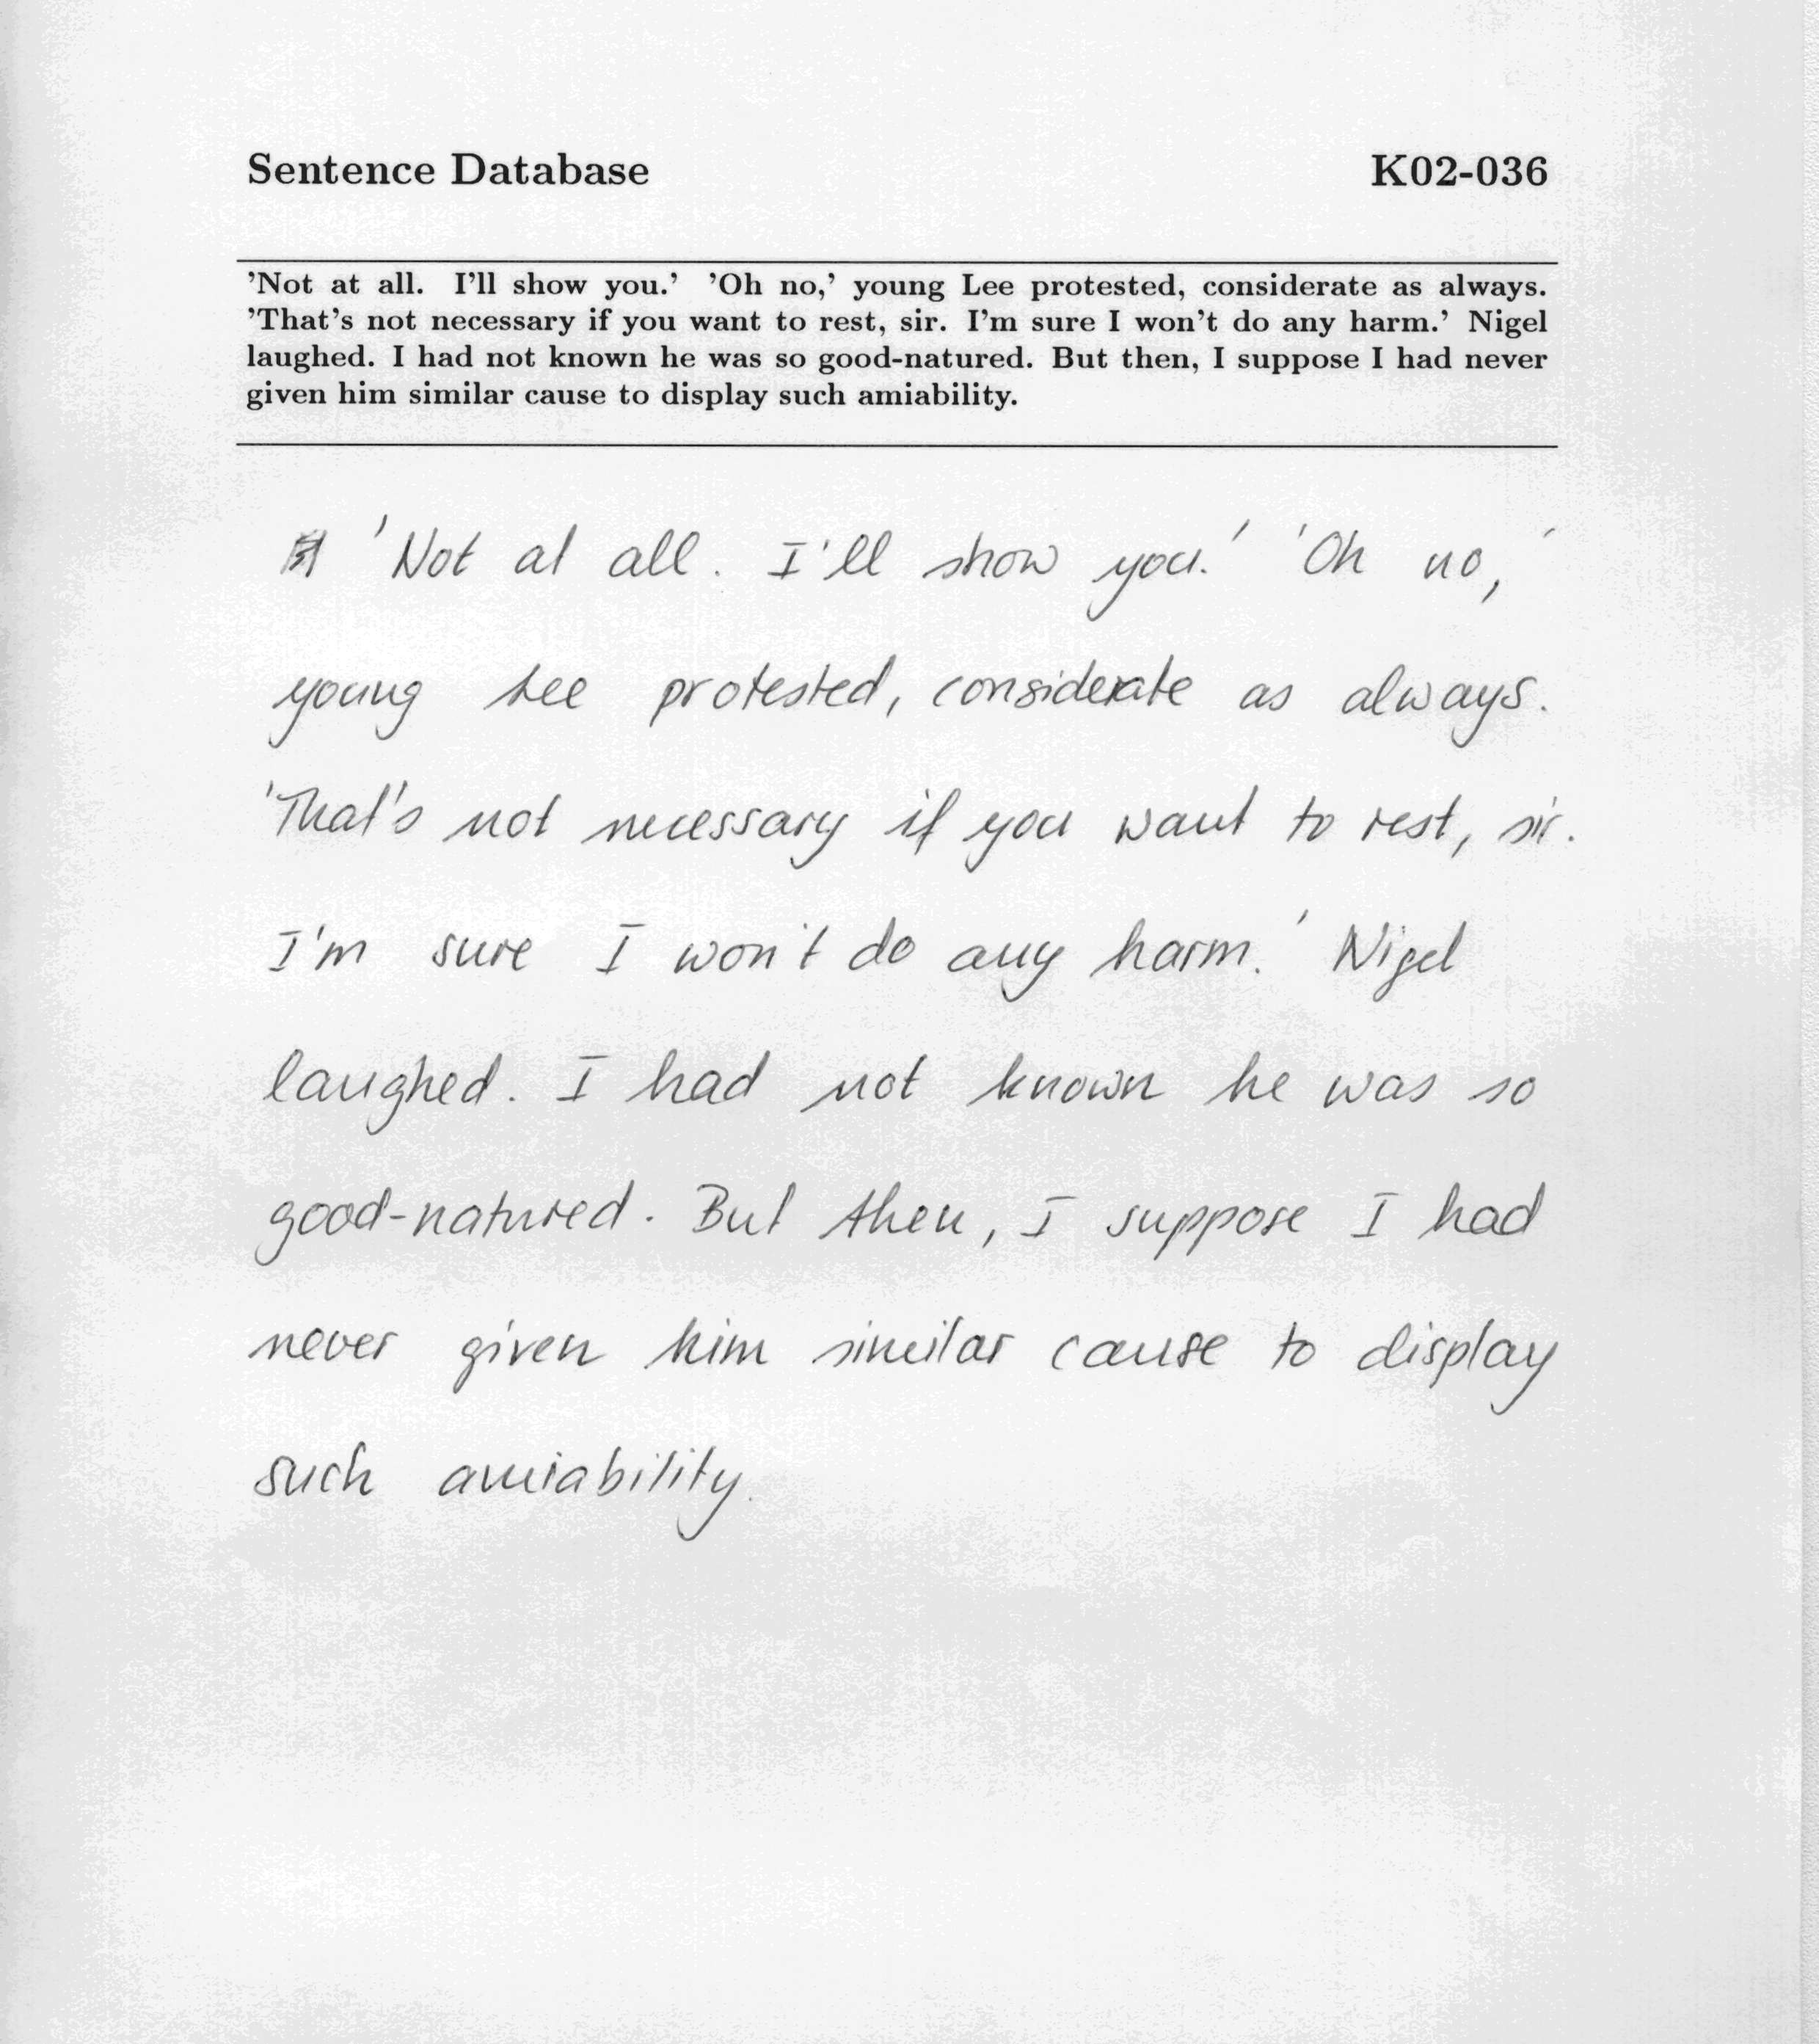 Sentence Database K02-036
’Not at all. I’ll show you.’ ’Oh no,’ young Lee protested, considerate as always.
’That’s not necessary if you want to rest, sir. I’m sure I won’t do any harm.’ Nigel
laughed. I had not known he was so good-natured. But then, I suppose I had never
given him similar cause to display such amiability.
'Not at all. I'll show you.' 'Oh no,'
young Lee protested, considerate as always.
'That's not necessary if you want to rest, sir.
I'm sure I won't do any harm.' Nigel
laughed. I had not known he was so
good-natured. But then, I suppose I had
never given him similar cause to display
such amiability.